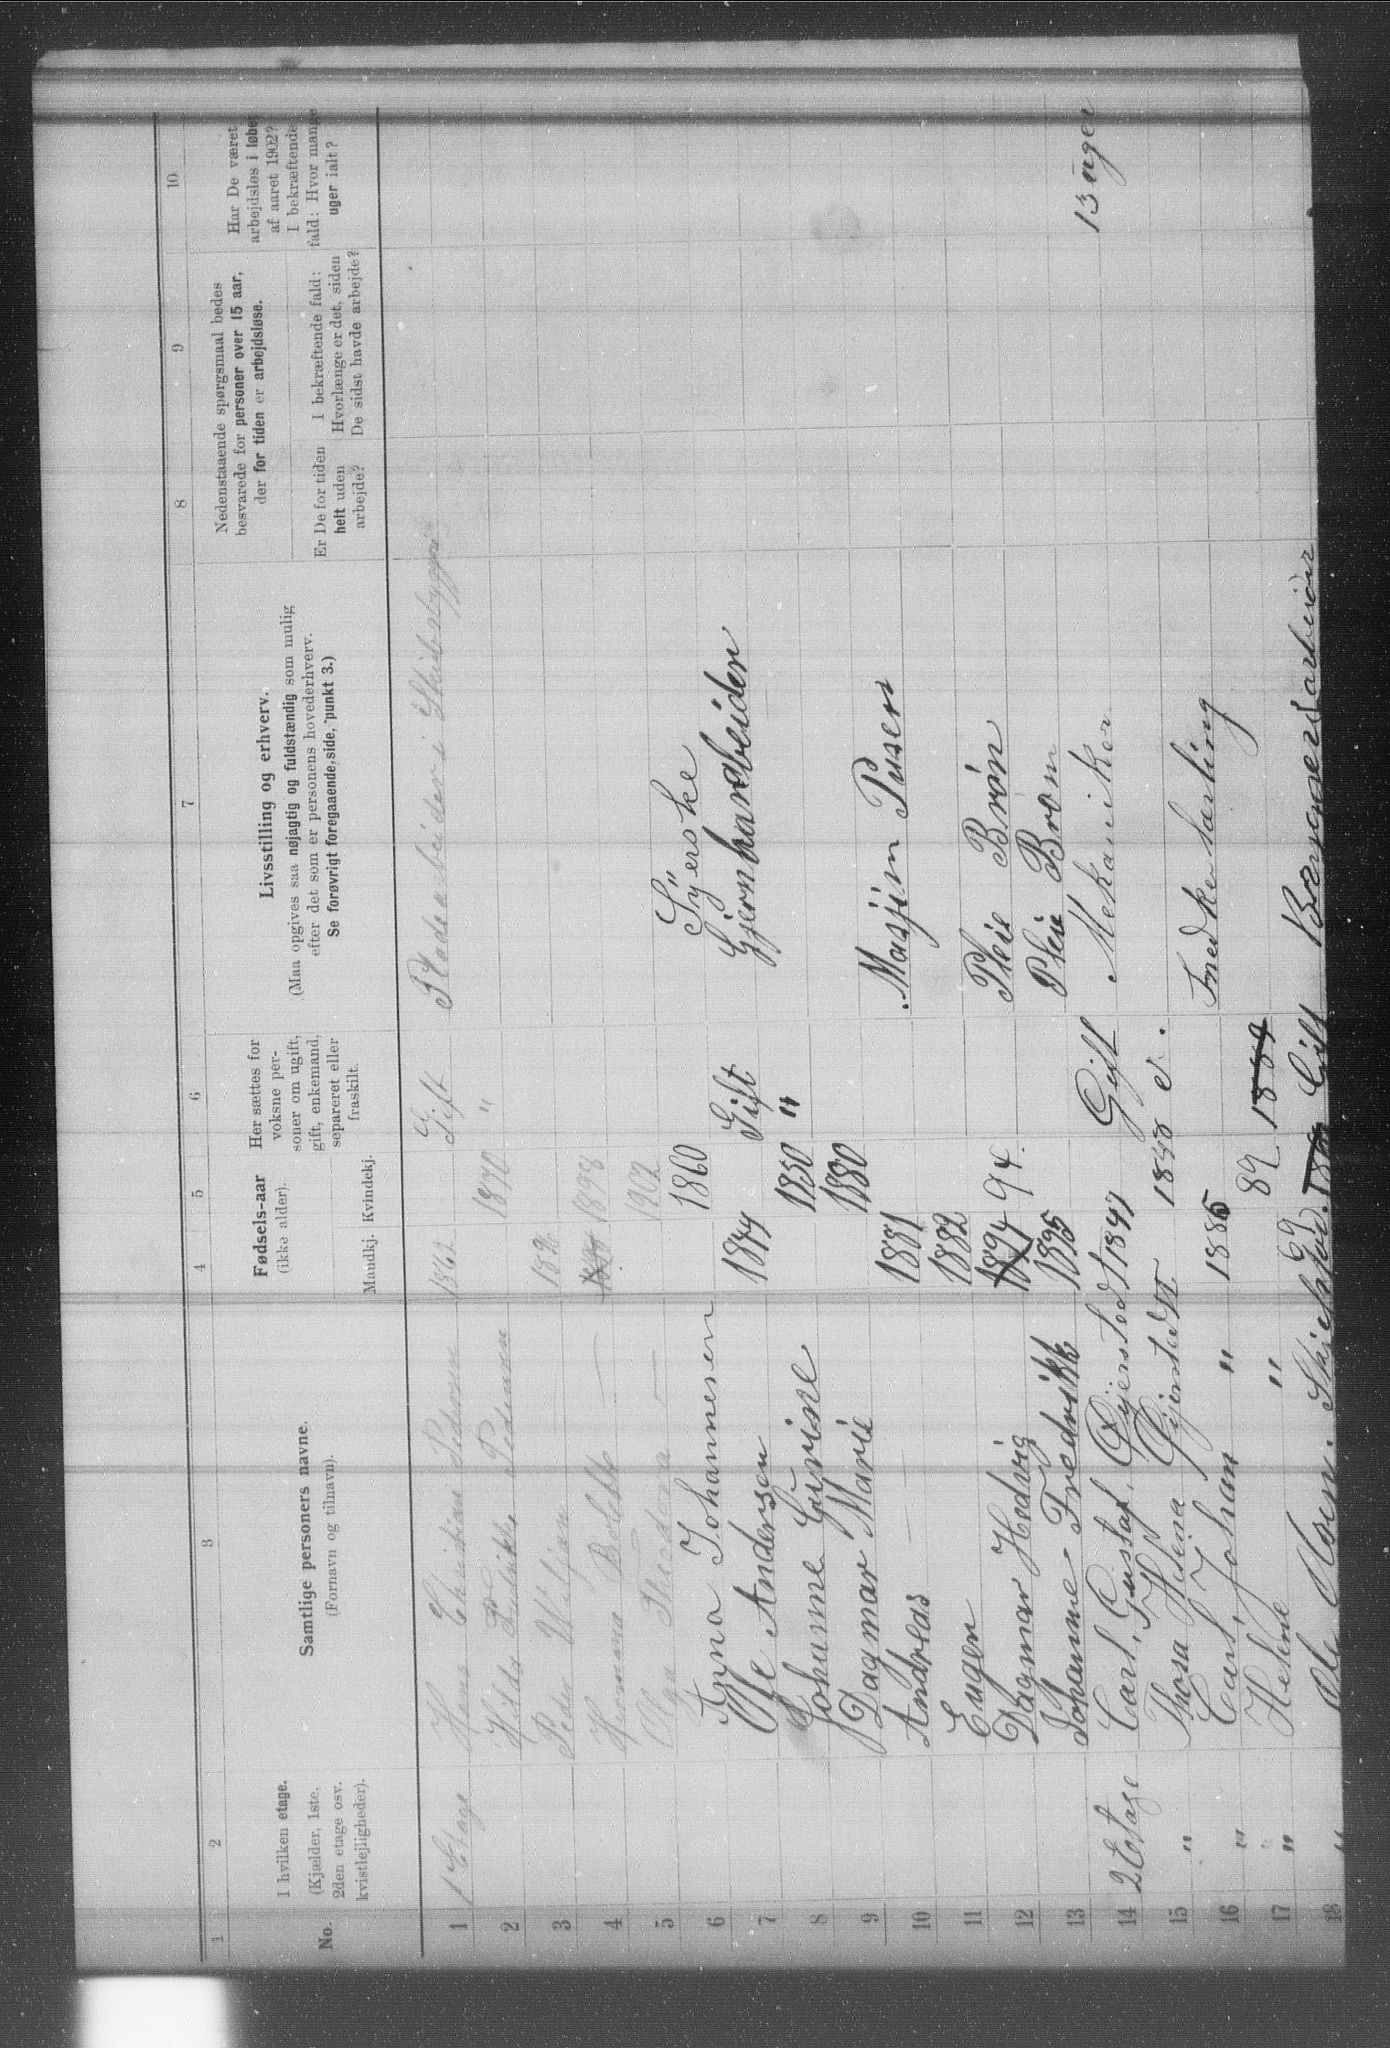 1 2 3 4 5 6 7 8 9 10
No.
I hvilken etage.
(Kjælder, 1ste,
2den etage osv.
kvistlejligheder).
Samtlige personers navne.
(Fornavn og tilnavn).
Fødsels-aar
(ikke alder).
Mandkj. Kvindekj.
Her sættes for
voksne per-
soner om ugift,
gift, enkemand,
separeret eller
fraskilt.
Livsstilling og erhverv.
(Maa opgives saa nøjagtig og fuldstændig som mulig
efter det som er personens hovederhverv.
Se forøvrigt foregaaende side, punkt 3.)
Nedenstaaende spørgsmaal bedes
besvarede for personer over 15 aar,
der for tiden er arbejdsløse.
Er De for tiden
helt uden
arbejde?
I bekræftende fald:
Hvorlænge er det, siden
De sidst havde arbejde?
Har De været
arbejdsløs i løbet
af aaret 1902?
I bekræftende
fald: Hvor mange
uger ialt?
1 1 Etage Hans Christian Pedersen 1862 Gift Pladsarbeider i Skibsbyggeri
2 Hilda Fredrikke Pedersen 1870 "
3 Peder Wiljam 1896
4 Hermina Bolette — 1898
5 Olga Theodora — 1902
6 Anna Johannesen 1860 Syerske
7 Ole Andersen 1844 Gift Gjernbarbeider
8 Johanne Gurine 1850 "
9 Dagmar Marie 1880
10 Andreas 1881 Masjin Puser
11 Eugen 1882
12 Dagmar Hedvig 1894 94. Pleie Brøn
13 Johanne Fredrikk 1895 Pleie Brøm
14 2 Etage Carl, Gustaf, Øjenstedt 1847 Gift Mekaniker 13 uger
15 " Thosa Helena Øjenstedt 1848 e.
16 " Carl, Johan " 1886 Snedkerlærling
17 " Helene " 89 1884
18 " Ole Olsen. Skjethjord. 69 Gift Bryggeriarbeider